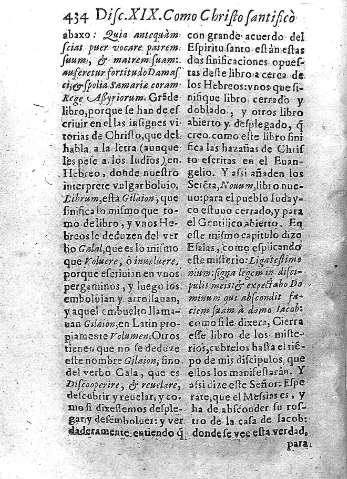 434 Disc. XIX. Como Christo santificò
abaxo: Quia antequam
sciat puer vocare patrem
suum, & matrem suam:
auferetur fortitudo Damas
ci, & spolia Samariæ coram
Rege Assyriorum. Grāde
libro, porque se han de es
criuir en el las insignes vi
torias de Christo, que del
habla a la letra (aunque
les pese a los Iudios) en
Hebreo, donde nuestro
interprere vulgar boluio,
Librum, esta Gilaion, que
sinifica lo mismo que to-
mo de libro, y vnos Heb
reos le deduzen del ver
bo Galal, que es lo mismo
que Voluere, ò inuoluere,
porque escriuian en vnos
pergaminos, y luego los
emboluian y arrollauan,
y aquel embuelto llama-
uan Gilaion, en Latin pro
piamente Volumen. Otros
tienen que no se deduze
este nombre Gilaion, sino
del verbo Gala, que es
Discooperire, & reuelare,
descubrir y reuelar, y co-
mo si dixessemos desple-
gar, y desemboluer: y ver
daderamente entiendo q̃
con grande acuerdo del
Espiritu santo están estas
dos sinificaciones opues-
tas deste libro a cerca de
los Hebreos: vnos que si-
nifique libro cerrado y
doblado, y otros libro
abierto y desplegado, q̃
creo como este libro sini
fica las hazañas de Chris
to escritas en el Euan-
gelio. Y assi añaden los
Setēta, Nouum, libro nue-
uo: para el pueblo Iuday-
co estuuo cerrado, y para
el Gentilico abierto. En
este mismo capitulo dize
Esaias, como esplicando
este misterio: Liga testimo
nium: signa legem in disci-
pulis meis: & expectabo Do
minum qui abscondit fa-
ciem suam à domo Iacob:
como si le dixera, Cierra
esse libro de los miste-
rios, cubrelos hasta el tiē-
po de mis discipulos, que
ellos los manifestarán. Y
assi dize este Señor. Espe
rate, que el Messias es, y
ha de absconder su ros-
tro de la casa de Iacob:
donde se vee esta verdad,
para